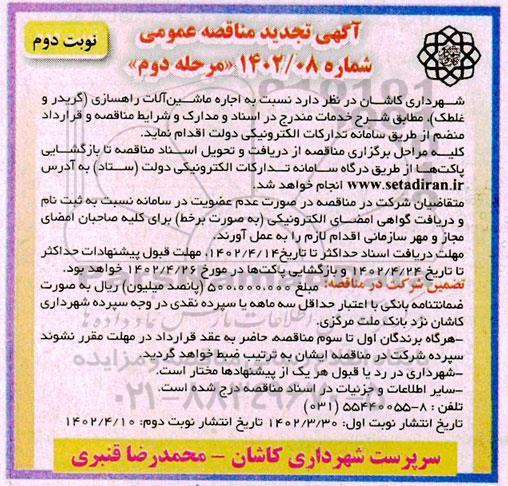 آگهی تجدید مناقصه عمومی
شماره ۱۴۰۲/۰۸ «مرحله دوم»
نوبت دوم
شهرداری کاشان در نظر دارد نسبت به اجاره ماشین‌آلات راهسازی (گریدر و
غلطک)، مطابق شرح خدمات مندرج در اسناد و مدارک و شرایط مناقصه و قرارداد
منضم از طریق سامانه تدارکات الکترونیکی دولت اقدام نماید.
کلیه مراحل برگزاری مناقصه از دریافت و تحویل اسناد مناقصه تا بازگشایی
پاکت‌ها از طریق درگاه سامانه تدارکات الکترونیکی دولت (ستاد) به آدرس
www.setadiran.ir انجام خواهد شد.
متقاضیان شرکت در مناقصه در صورت عدم عضویت در سامانه نسبت به ثبت نام
و دریافت گواهی امضای الکترونیکی (به صورت برخط) برای کلیه صاحبان امضای
مجاز و مهر سازمانی اقدام لازم را به عمل آورند.
مهلت دریافت اسناد حداکثر تا تاریخ۱۴۰۲/۴/۱۴، مهلت قبول پیشنهادات حداکثر
تا تاریخ ۱۴۰۲/۴/۲۴ و بازگشایی پاکت‌ها در مورخ ۱۴۰۲/۴/۲۶ خواهد بود.
تضمین شرکت در مناقصه: مبلغ ۵۰۰.۰۰۰.۰۰۰ (پانصد میلیون) ریال به صورت
ضمانتنامه بانکی با اعتبار حداقل سه ماهه یا سپرده نقدی در وجه سپرده شهرداری
کاشان نزد بانک ملت مرکزی.
-هرگاه برندگان اول تا سوم مناقصه، حاضر به عقد قرارداد در مهلت مقرر نشوند
سپرده شرکت در مناقصه ایشان به ترتیب ضبط خواهد گردید.
-شهرداری در رد یا قبول هر یک از پیشنهادها مختار است.
-سایر اطلاعات و جزئیات در اسناد مناقصه درج شده است.
تلفن : ۸-۵۵۴۴۰۰۵۵ (۰۳۱)
تاریخ انتشار نوبت اول: ۱۴۰۲/۳/۳۰ تاریخ انتشار نوبت دوم: ۱۴۰۲/۴/۱۰
سرپرست شهرداری کاشان - محمدرضا قنبری